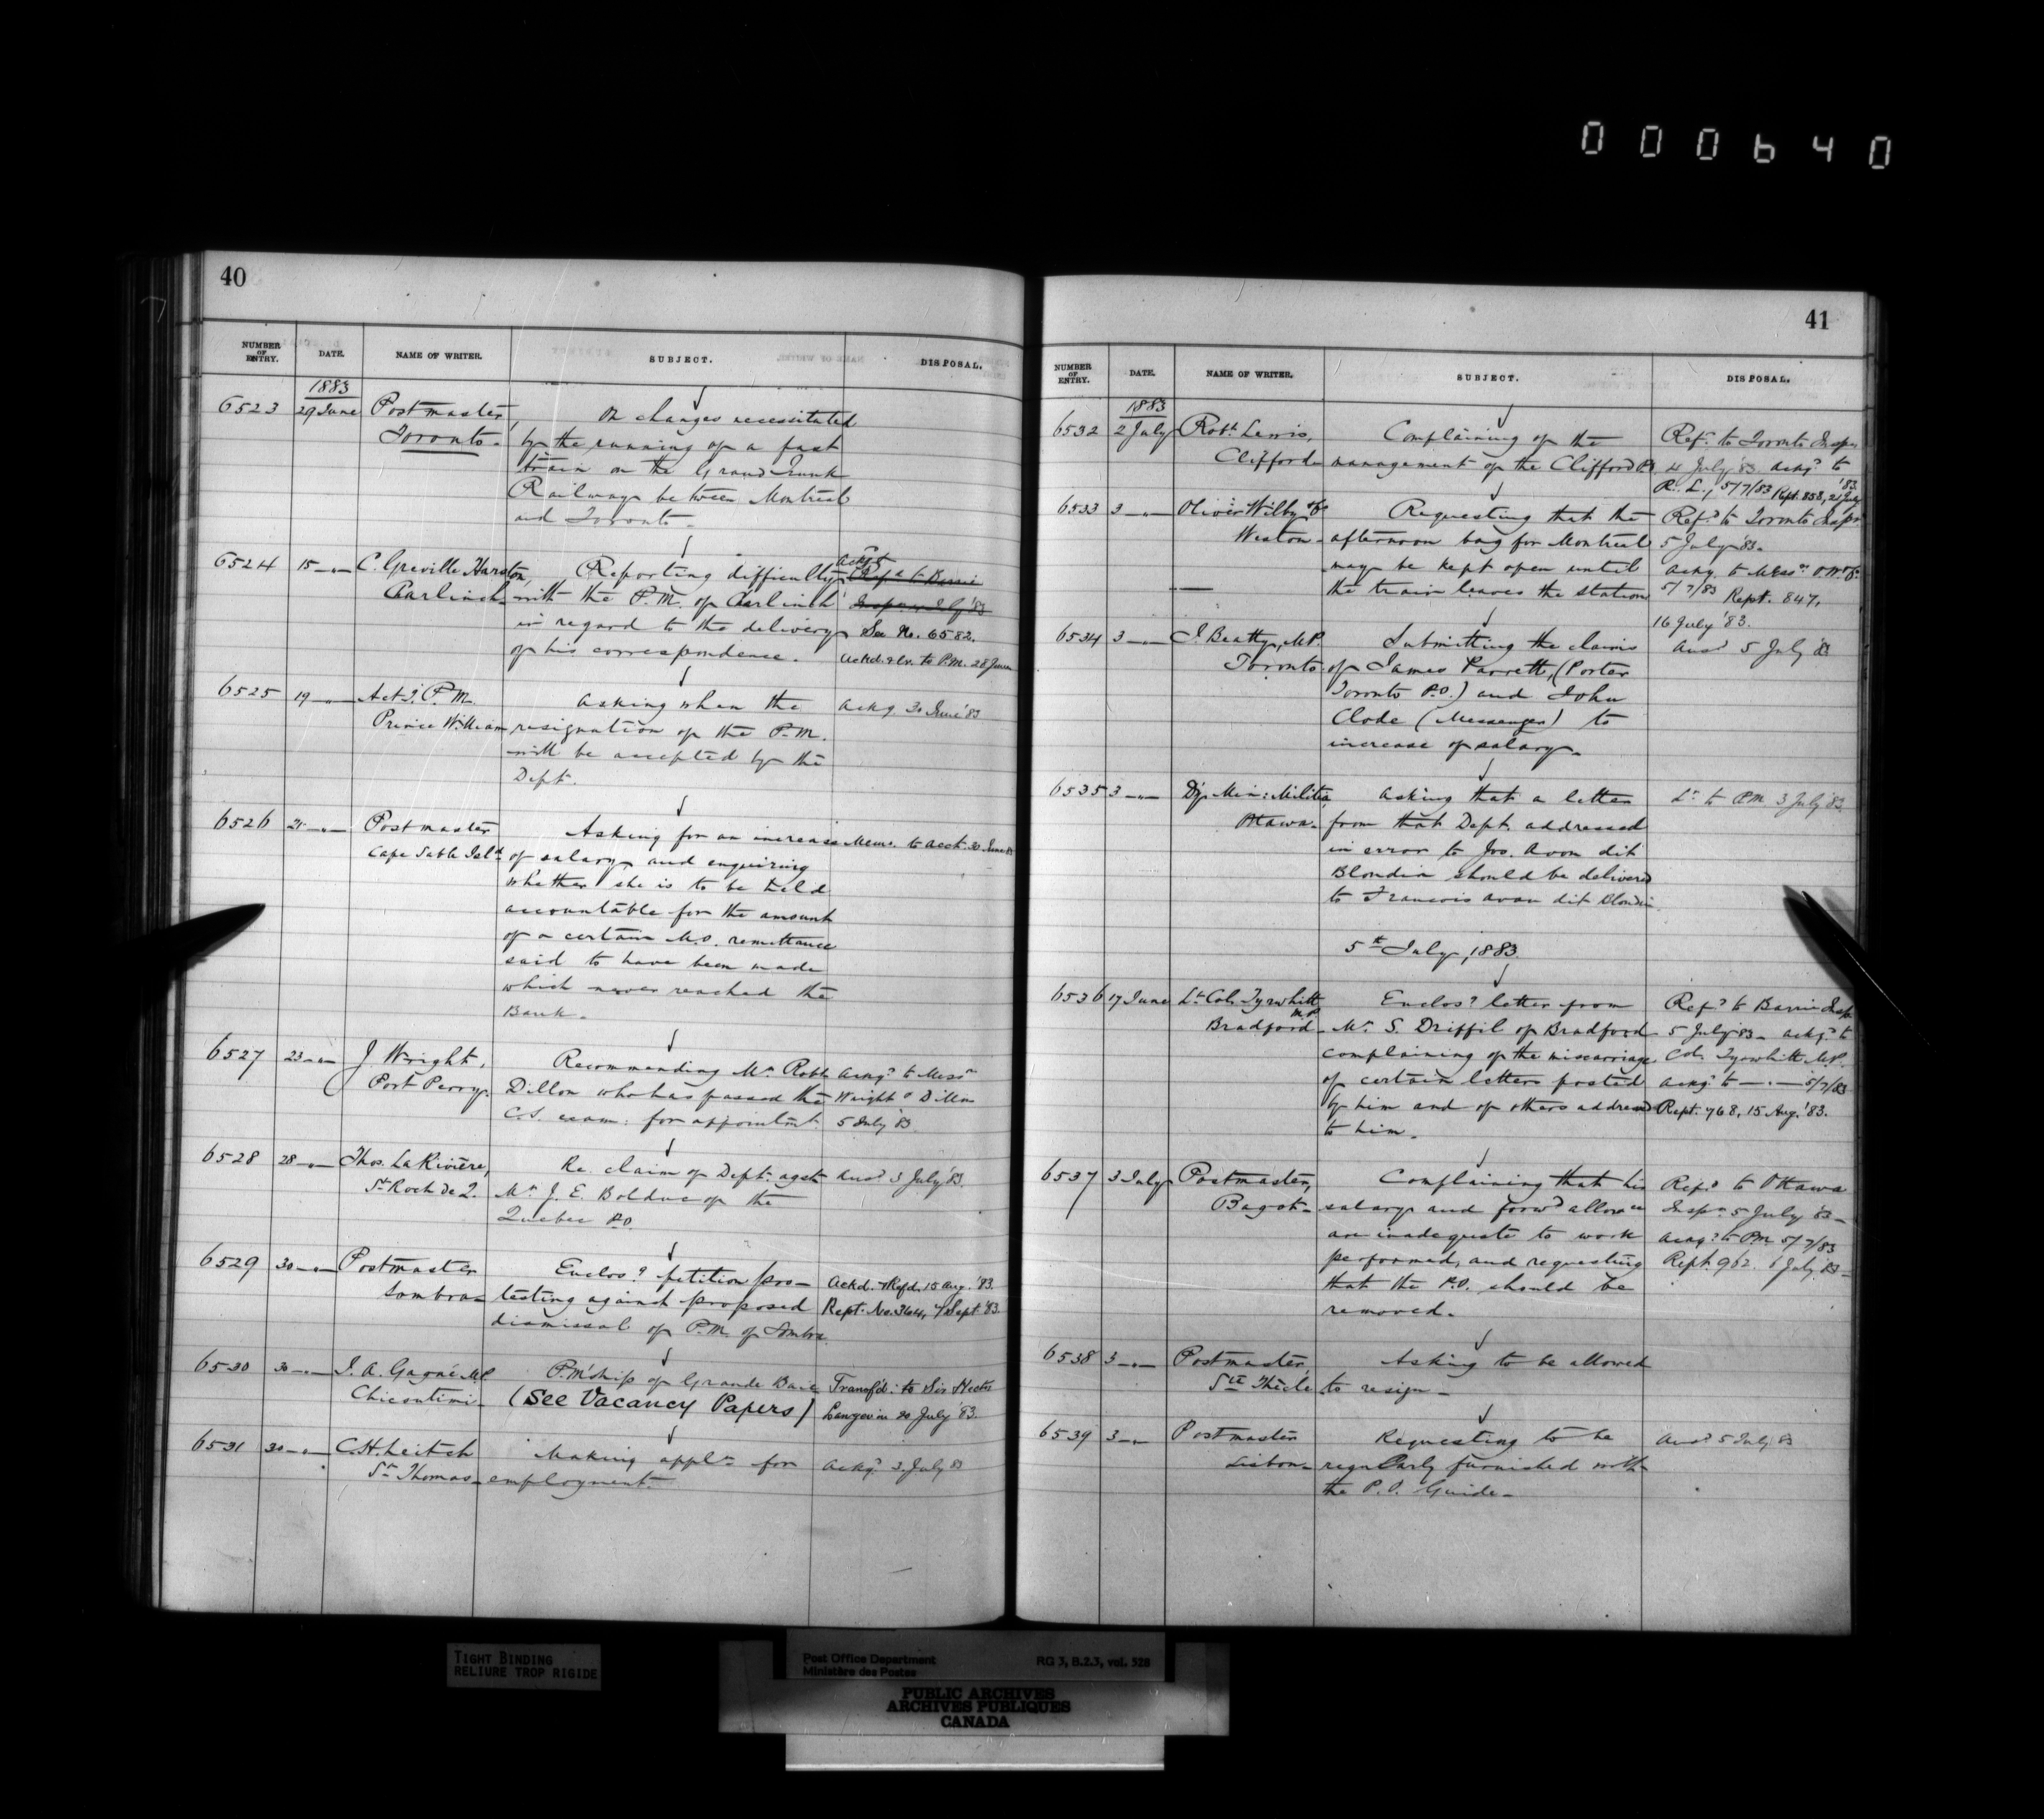 000640
40
NUMBER OF ENTRY. DATE. NAME OF WRITER. SUBJECT. DISPOSAL.
1883
6523 29 June Postmaster, On changes necessitated
Toronto. by the running of a fast
train on the Grand Trunk
Railway between Montreal
and Toronto.
6524 15 —"— C. Greville Harston, Reporting difficulty ackg.d
Carlinch with the P.M. of Carlinch Ref.d to Barrie
in regard to the delivery See No. 6582.
of his correspondence. ackd. to P.M. 28 June
6525 19 —"— Act.g P.M. asking when the ackg 30 June '83
Prince William resignation of the P.M.
will be accepted by the
Dept.
6526 21 —"— Postmaster Asking for an increase Mem. to acct. 30 June 83
Cape Sable Isl.d of salary and enquiring
whether she is to be held
accountable for the amount
of a certain M.O. remittance
said to have been made
which never reached the
Bank.
6527 23 —"— J Wright, Recommending Mr Robt ackg.d to Mess.rs
Port Perry. Dillon who has passed the Wright & Dillon
C.S. exam: for appointmt. 5 July '83
6528 28 —"— Thos. La Rivière, Re. claim of Dept. agst ans.d 3 July '83.
St Roch de Q. Mr J. E. Bolduc of the
Quebec P.O.
6529 30 —"— Postmaster Enclos.g petition pro-
Sombra testing against proposed Ackd. & Refd. 15 Aug. '83.
dismissal of P.M. of Sombra. Rept. No. 364, 7 Sept. '83.
6530 30 —"— J. A. Gagné MP P.M'ship of Grande Baie Transf'd: to Sir Hector
Chicoutimi. (See Vacancy Papers) Langevin 20 July '83.
6531 30 —"— C. H. Leitch Making appl.n for ackg.d 3 July 83
St Thomas employment.
41
NUMBER OF ENTRY. DATE. NAME OF WRITER. SUBJECT. DISPOSAL.
1883
6532 2 July Robt. Lewis, Complaining of the Ref.d to Toronto Inspr
Clifford management of the Clifford P.O. 4 July '83. ackg.d to
R. L., 5/7/83 Rept. 858, 21 July '83.
6533 3 —"— Oliver Wilby & Co Requesting that the Ref.d to Toronto Inspr
Weston afternoon bag for Montreal 5 July '83.
may be kept open until ackg. to Mess.rs O. W. & Co
the train leaves the station 5/7/83 Rept. 847,
16 July '83.
6534 3 —"— J. Beatty, M.P. Submitting the claims ans.d 5 July 83
Toronto of James Parrett, (Porter
Toronto P.O.) and John
Clode (Messenger) to
increase of salary.
6535 3 —"— Dy. Min: Militia, asking that a letter Lr. to P.M. 3 July '83.
Ottawa. from that Dept. addressed
in error to Jos. Avon dit
Blondin should be delivered
to Francois Avon dit Blondin.
5th July, 1883.
6536 17 June Lt. Col. Tyrwhitt, M.P. Enclos.g letter from Ref.d to Barrie Insp.
Bradford Mr. S. Driffil of Bradford 5 July '83. ackg.d to
complaining of the miscarriage Col. Tyrwhitt M.P.
of certain letters posted ackg.d to —"— 5/7/83
by him and of others addressed Rept. 768, 15 Aug. '83.
to him.
6537 3 July Postmaster, Complaining that his Ref.d to Ottawa
Bagot salary and forw.d allowce Inspr. 5 July '83
are inadequate to work ackg.d to P.M 5/7/83
performed, and requesting Rept 962. 6 July 83
that the P.O. should be
removed.
6538 3 —"— Postmaster, Asking to be allowed
Ste Thècle to resign.
6539 3 —"— Postmaster Requesting to be ans.d 5 July 83
Lisbon regularly furnished with
the P.O. Guide.
TIGHT BINDING
RELIURE TROP RIGIDE
Post Office Department RG 3, B.2.3, vol. 528
Ministère des Postes
PUBLIC ARCHIVES
ARCHIVES PUBLIQUES
CANADA